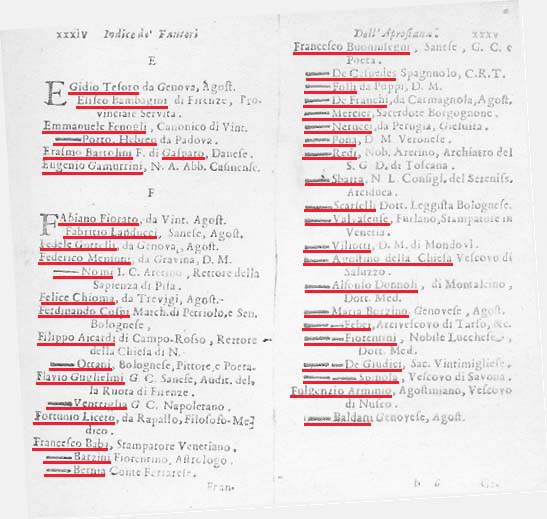 xxxiv Indice de' Fautori
E
EGidio Tesoro da Genova, Agost.
Eliseo Bambagini di Firenze, Pro-
vinciale Servita.
Emmanuele Fenogli, Canonico di Vint.
—— Porto, Hebreo da Padova.
Erasmo Bartolini F. di Gasparo, Danese.
Eugenio Gamurrini, N. A. Abb. Casinense.
F
FAbiano Fiorato, da Vint. Agost.
Fabritio Landucci, Sanese, Agost.
Fedele, da Genova, Agost.
Federico Meninni, da Gravina, D. M.
—— Nomi I. C. Aretino, Rettore della
Sapienza di Pisa.
Felice Chioma, da Trevigi, Agost.
Ferdinando Cospi March. di Petriolo, e Sen.
Bolognese,
Filippo Aicardi di Campo-Rosso, Rettore
della Chiesa di N.
—— Ottani, Bolognese, Pittore, e Poeta.
Flavio Guglielmi G. C. Sanese, Audit. del-
la Ruota di Firenze.
—— Ventriglia G. C. Napoletano.
Fortunio Liceto, da Rapallo, Filosofo-Me-
dico.
Francesco Baba, Stampatore Venetiano.
—— Barzini Fiorentino, Astrologo.
—— Bernia Conte Ferrarese.
Fran-
Dell'Aprosiana. xxxv
Francesco Buoninsegni, Sanese, G. C. e
Poeta.
—— De Cespedes Spagnuolo, C. R. T.
—— Folli da Poppi, D. M.
—— De Franchi, da Carmagnola, Agost.
—— Mercier, Sacerdote Borgognone.
—— Nerucci, da Perugia, Giesuita.
—— Pona, D. M. Veronese.
—— Redi, Nob. Aretino, Archiatro del
S. G. D. di Toscana.
—— Sbarra, N. L. Consigl. del Sereniss.
Arciduca.
—— Scarselli Dott. Leggista Bolognese.
—— Valvasense, Furlano, Stampatore in
Venetia.
—— Viliotti, D. M. di Mondovì.
—— Agostino della Chiesa Vescovo di
Saluzzo.
—— Alfonso Donnoli, di Montalcino,
Dott. Med.
—— Maria Borzino Genovese, Agost.
—— Feber, Arcivescovo di Tarso, &c.
—— Fiorentini, Nobile Lucchese,
Dott. Med.
—— De Giudici, Sac. Vintimigliese.
—— Spinola, Vescovo di Savona.
Fulgenzio Arminio, Agostiniano, Vescovo
di Nusco.
—— Baldani Genovese, Agost.
b 6